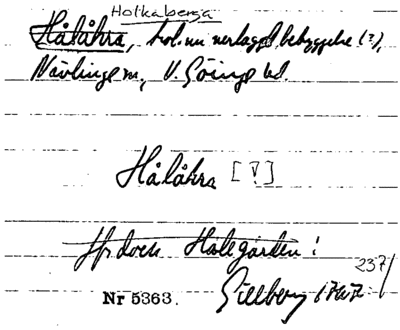 Holkaberga
Hålåkra, tol. nu nerlagd bebyggelse (?),
Nävlinge sn, V. Göinge hd.
Hålåkra [?]
Jfr dock Halegården!
237/
Nr 5363. Gillberg 1767